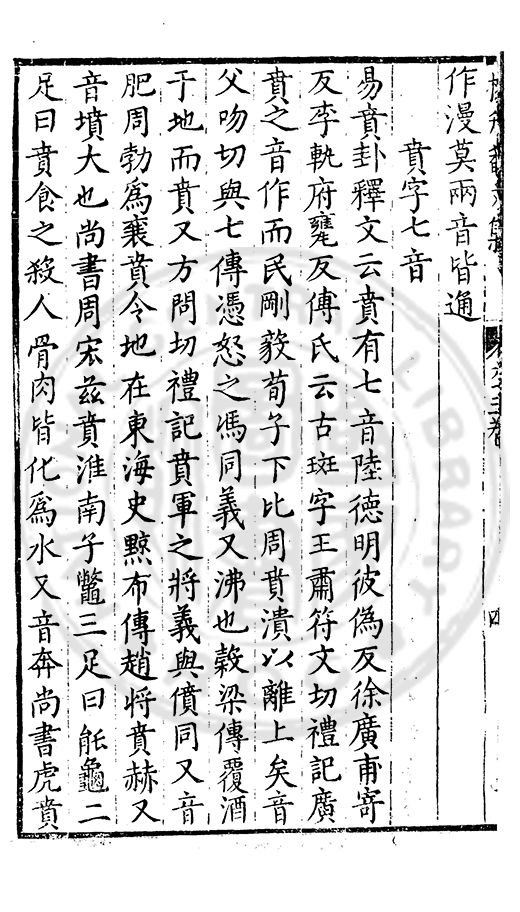 作漫莫兩音皆通
賁字七音
易賁卦釋文云賁有七音陸德明彼偽反徐廣甫寄
反李軌府甕反傳氏云古斑字王肅符文切禮記廣
賁之音作而民剛毅荀子下比周賁潰以離上矣音
父吻切與七傳憑怒之馮同義又沸也穀梁傳覆酒
于地而賁又方問切禮記賁軍之將義與僨同又音
肥周勃為襄賁令地在東海史黥布傳趙將賁赫又
音墳大也尚書周宏茲賁淮南子鼈三足曰能龜二
足曰賁食之殺人骨肉皆化為水又音奔尚書虎賁